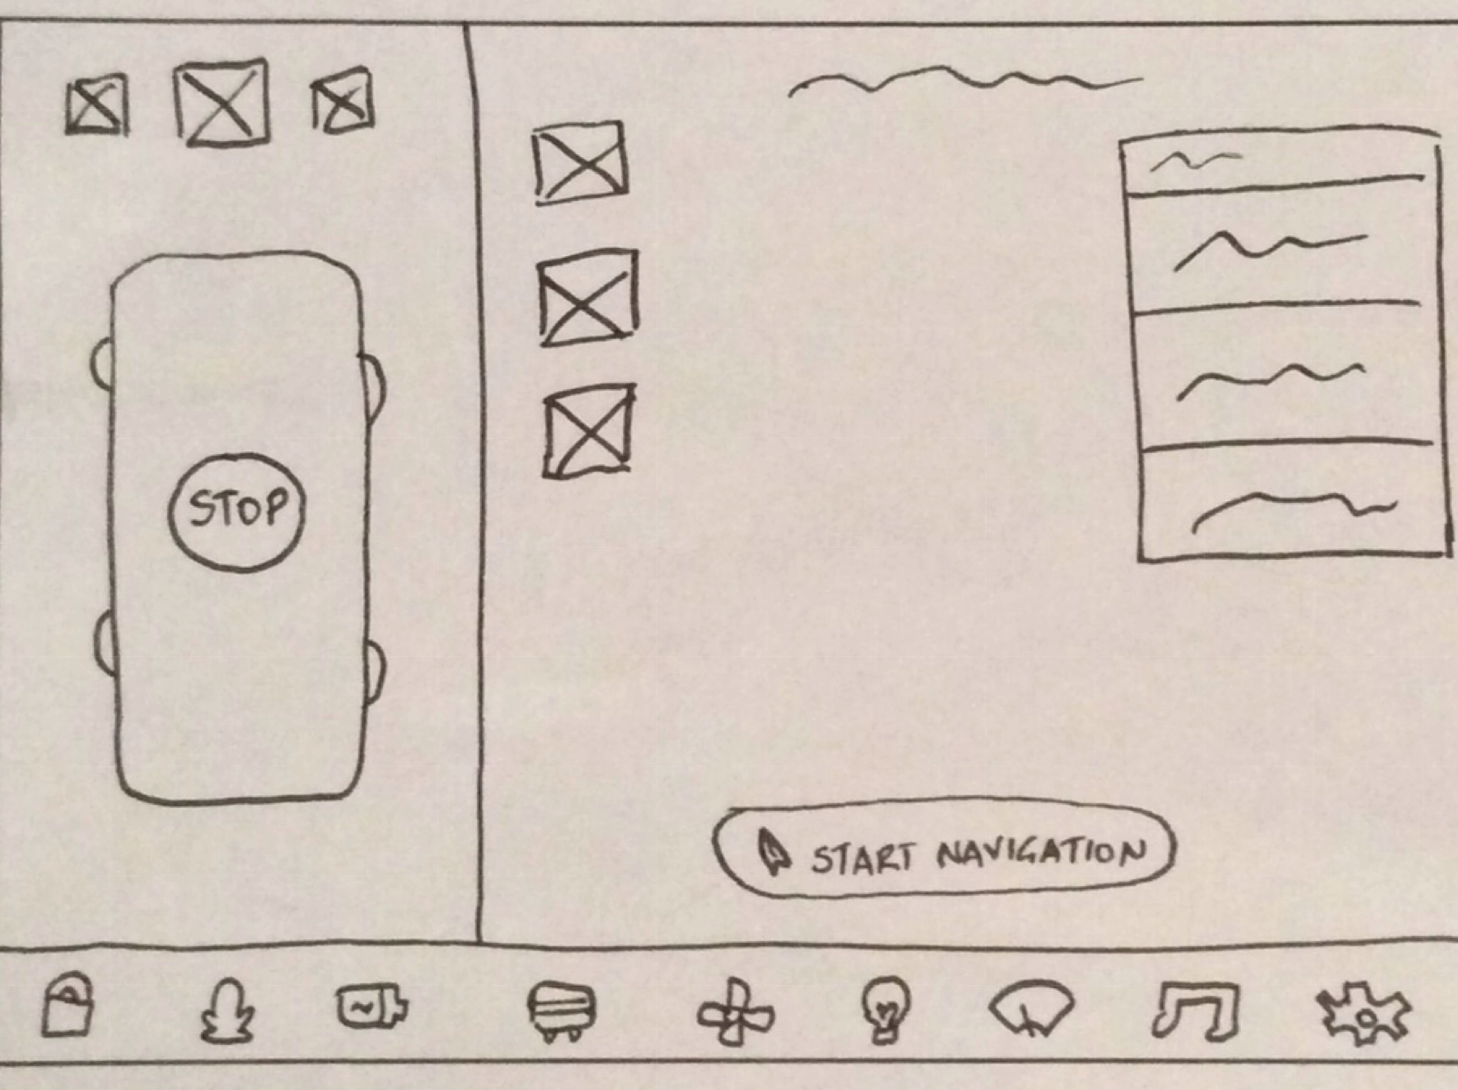 STOP
START NAVIGATION